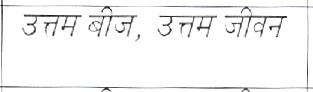 उत्तम बीज, उत्तम जीवन